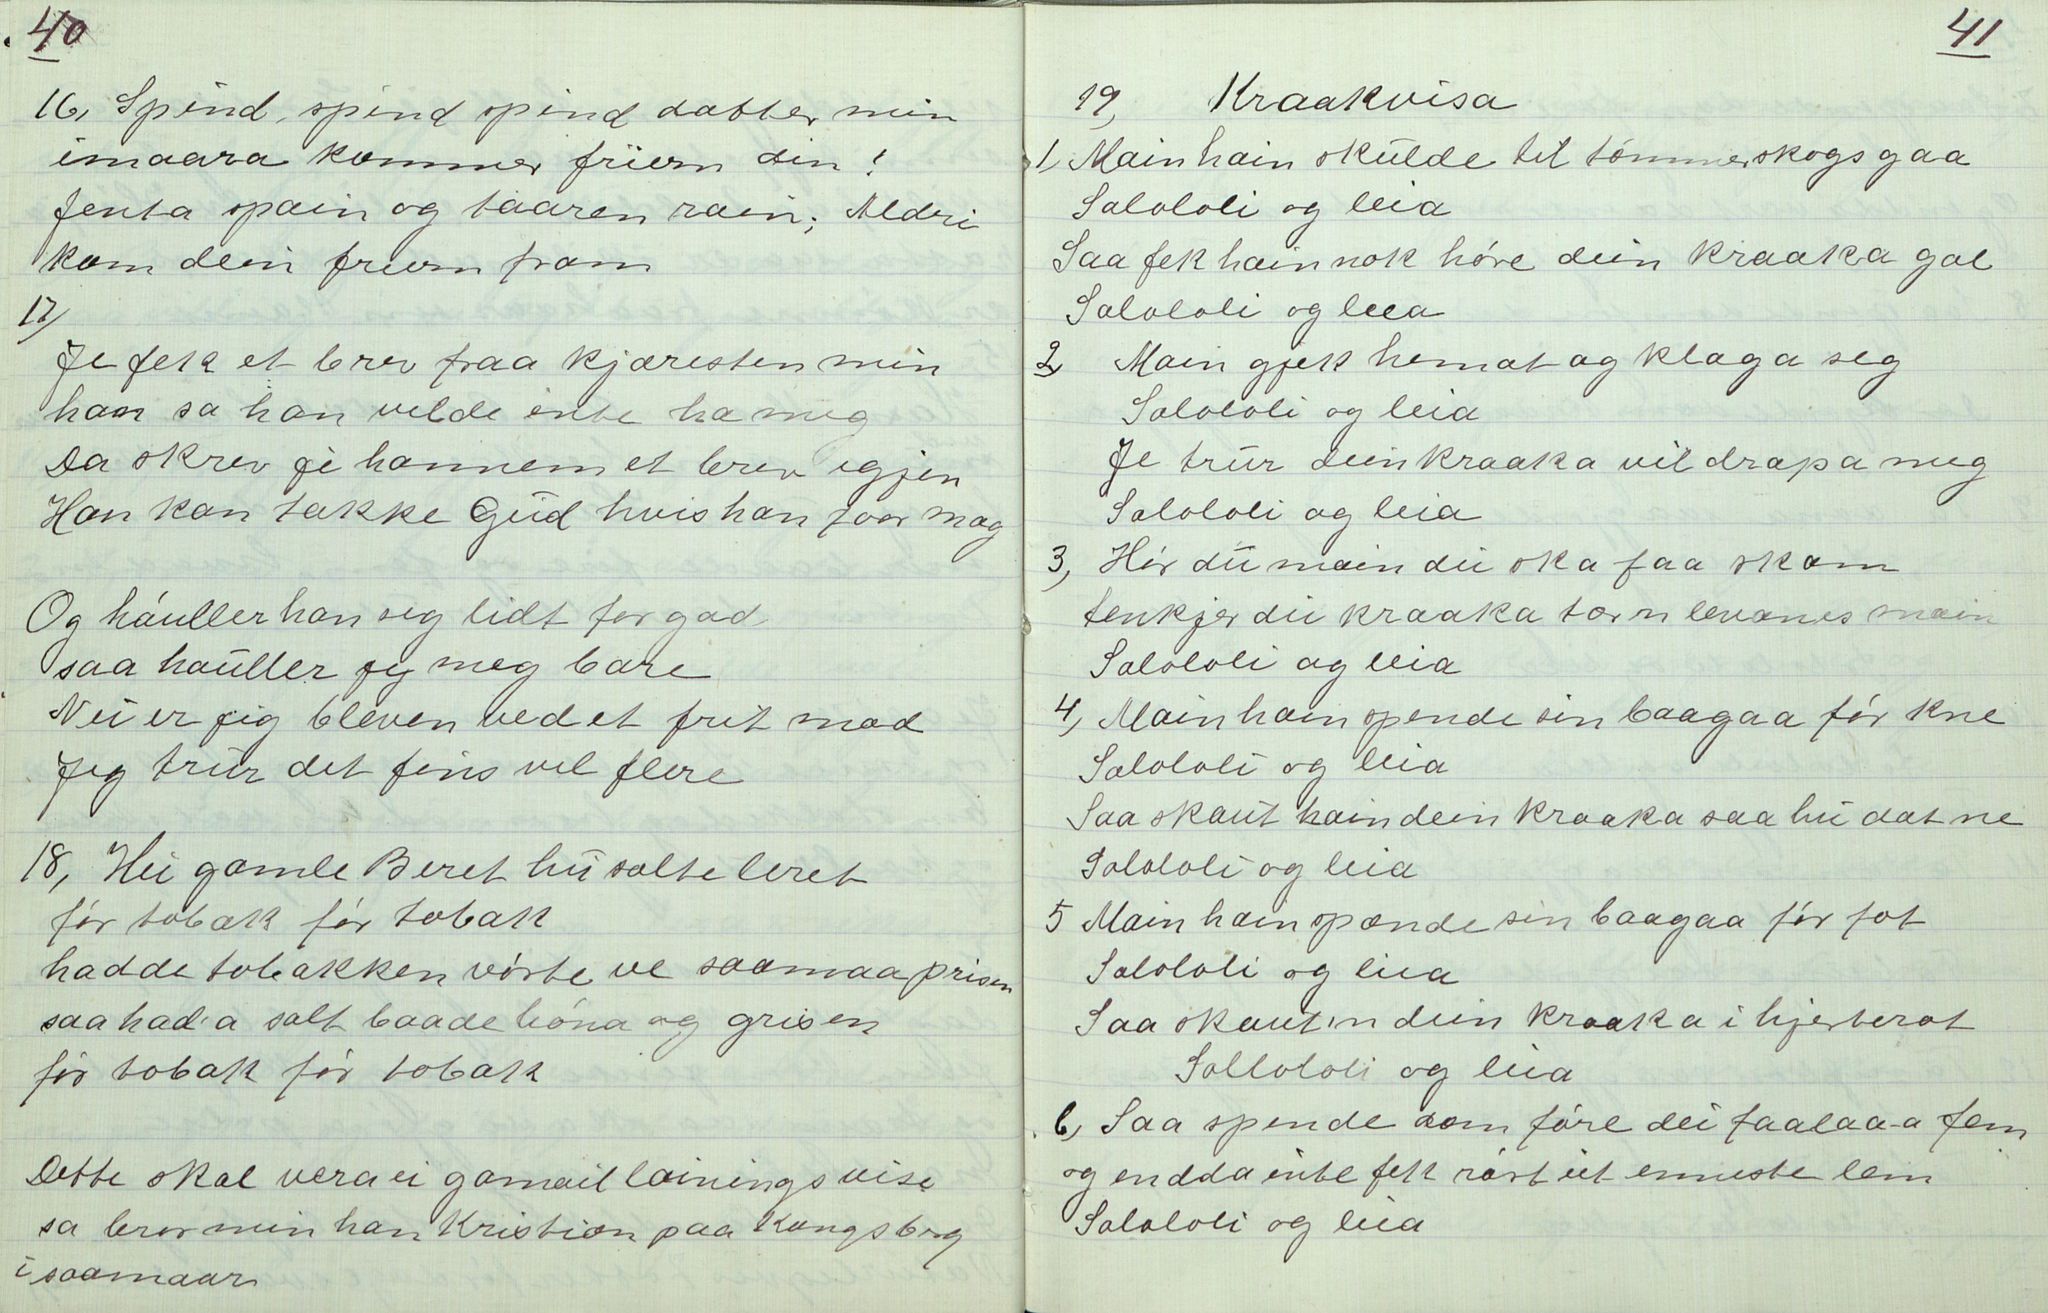 40
16, Spind, spind spind datter min
imaara kommer friern din!
Jenta spain og taaren rain; Aldri
kom dein friern fram
17)
Je fekk et brev fraa kjæresten min
han sa han vilde inte ha meg
Da skrev je hannem et brev igjen
Han kan takke Gud hvis han faar mag
Og háuller han seg lidt for god
saa hauller jeg meg bare
Nei er jeg bleven ved et frit mod
Jeg trur det fins vel flere
18, Hu gamle Beret hu solte leret
fór tobak fór tobak
hadde tobakken vórte ve saamaa prisen
saa had a solt baade hóna og grisen
fór tobak fór tobak
Dette skal vera ei gamail lainings vise
sa bror min han Kristian paa Kongsberg
i saamaar
41
19, Kraakvisa
1, Main hain skulde til tómmerskogs gaa
Salololi og leia
Saa fek hain nok hóre dein kraaka gol
Salololi og leia
2, Main gjek hemat og klaga seg
Salololi og leia
Je trur dein kraaka vil drapa meg
Salololi og leia
3, Hór du main du ska faa skam
tenkjer du kraaka tar n levanes main
Salololi og leia
4, Main hain spende sin baagaa fór kne
Salololi og leia
Saa skaut hain dein kraaka saa hu dat ne
Salololi og leia
5 Main hain spande sin baagaa fór fot
Salololi og leia
Saa skaut'n dein kraaka i hjerterot
Sallololi og leia
6, Saa spende dom fóre dei faalaa-a fem
og endda inte fekk rórt ut enneste lem
Salololi og leia